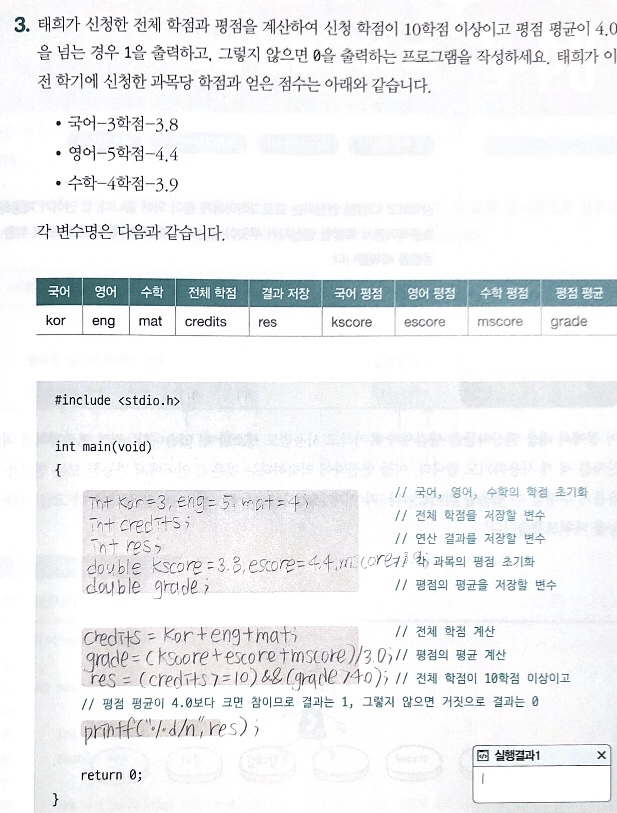 3. 태희가 신청한 전체 학점과 평점을 계산하여 신청 학점이 10학점 이상이고 평점 평균이 4.0
을 넘는 경우 1을 출력하고, 그렇지 않으면 0을 출력하는 프로그램을 작성하세요. 태희가 이
전 학기에 신청한 과목당 학점과 얻은 점수는 아래와 같습니다.
• 국어-3학점-3.8
• 영어-5학점-4.4
• 수학-4학점-3.9
각 변수명은 다음과 같습니다.
국어 영어 수학 전체 학점 결과 저장 국어 평점 영어 평점 수학 평점 평점 평균
kor eng mat credits res kscore escore mscore grade
#include <stdio.h>
int main(void)
{
int kor=3, eng=5, mat=4; // 국어, 영어, 수학의 학점 초기화
int credits; // 전체 학점을 저장할 변수
int res; // 연산 결과를 저장할 변수
double kscore=3.8, escore=4.4, mscore=3.9; // 각 과목의 평점 초기화
double grade; // 평점의 평균을 저장할 변수
credits = kor+eng+mat; // 전체 학점 계산
grade=(kscore+escore+mscore)/3.0; // 평점의 평균 계산
res = (credits>=10)&&(grade>4.0); // 전체 학점이 10학점 이상이고
// 평점 평균이 4.0보다 크면 참이므로 결과는 1, 그렇지 않으면 거짓으로 결과는 0
printf("%d/n", res);
return 0;
}
실행결과1 ×
1